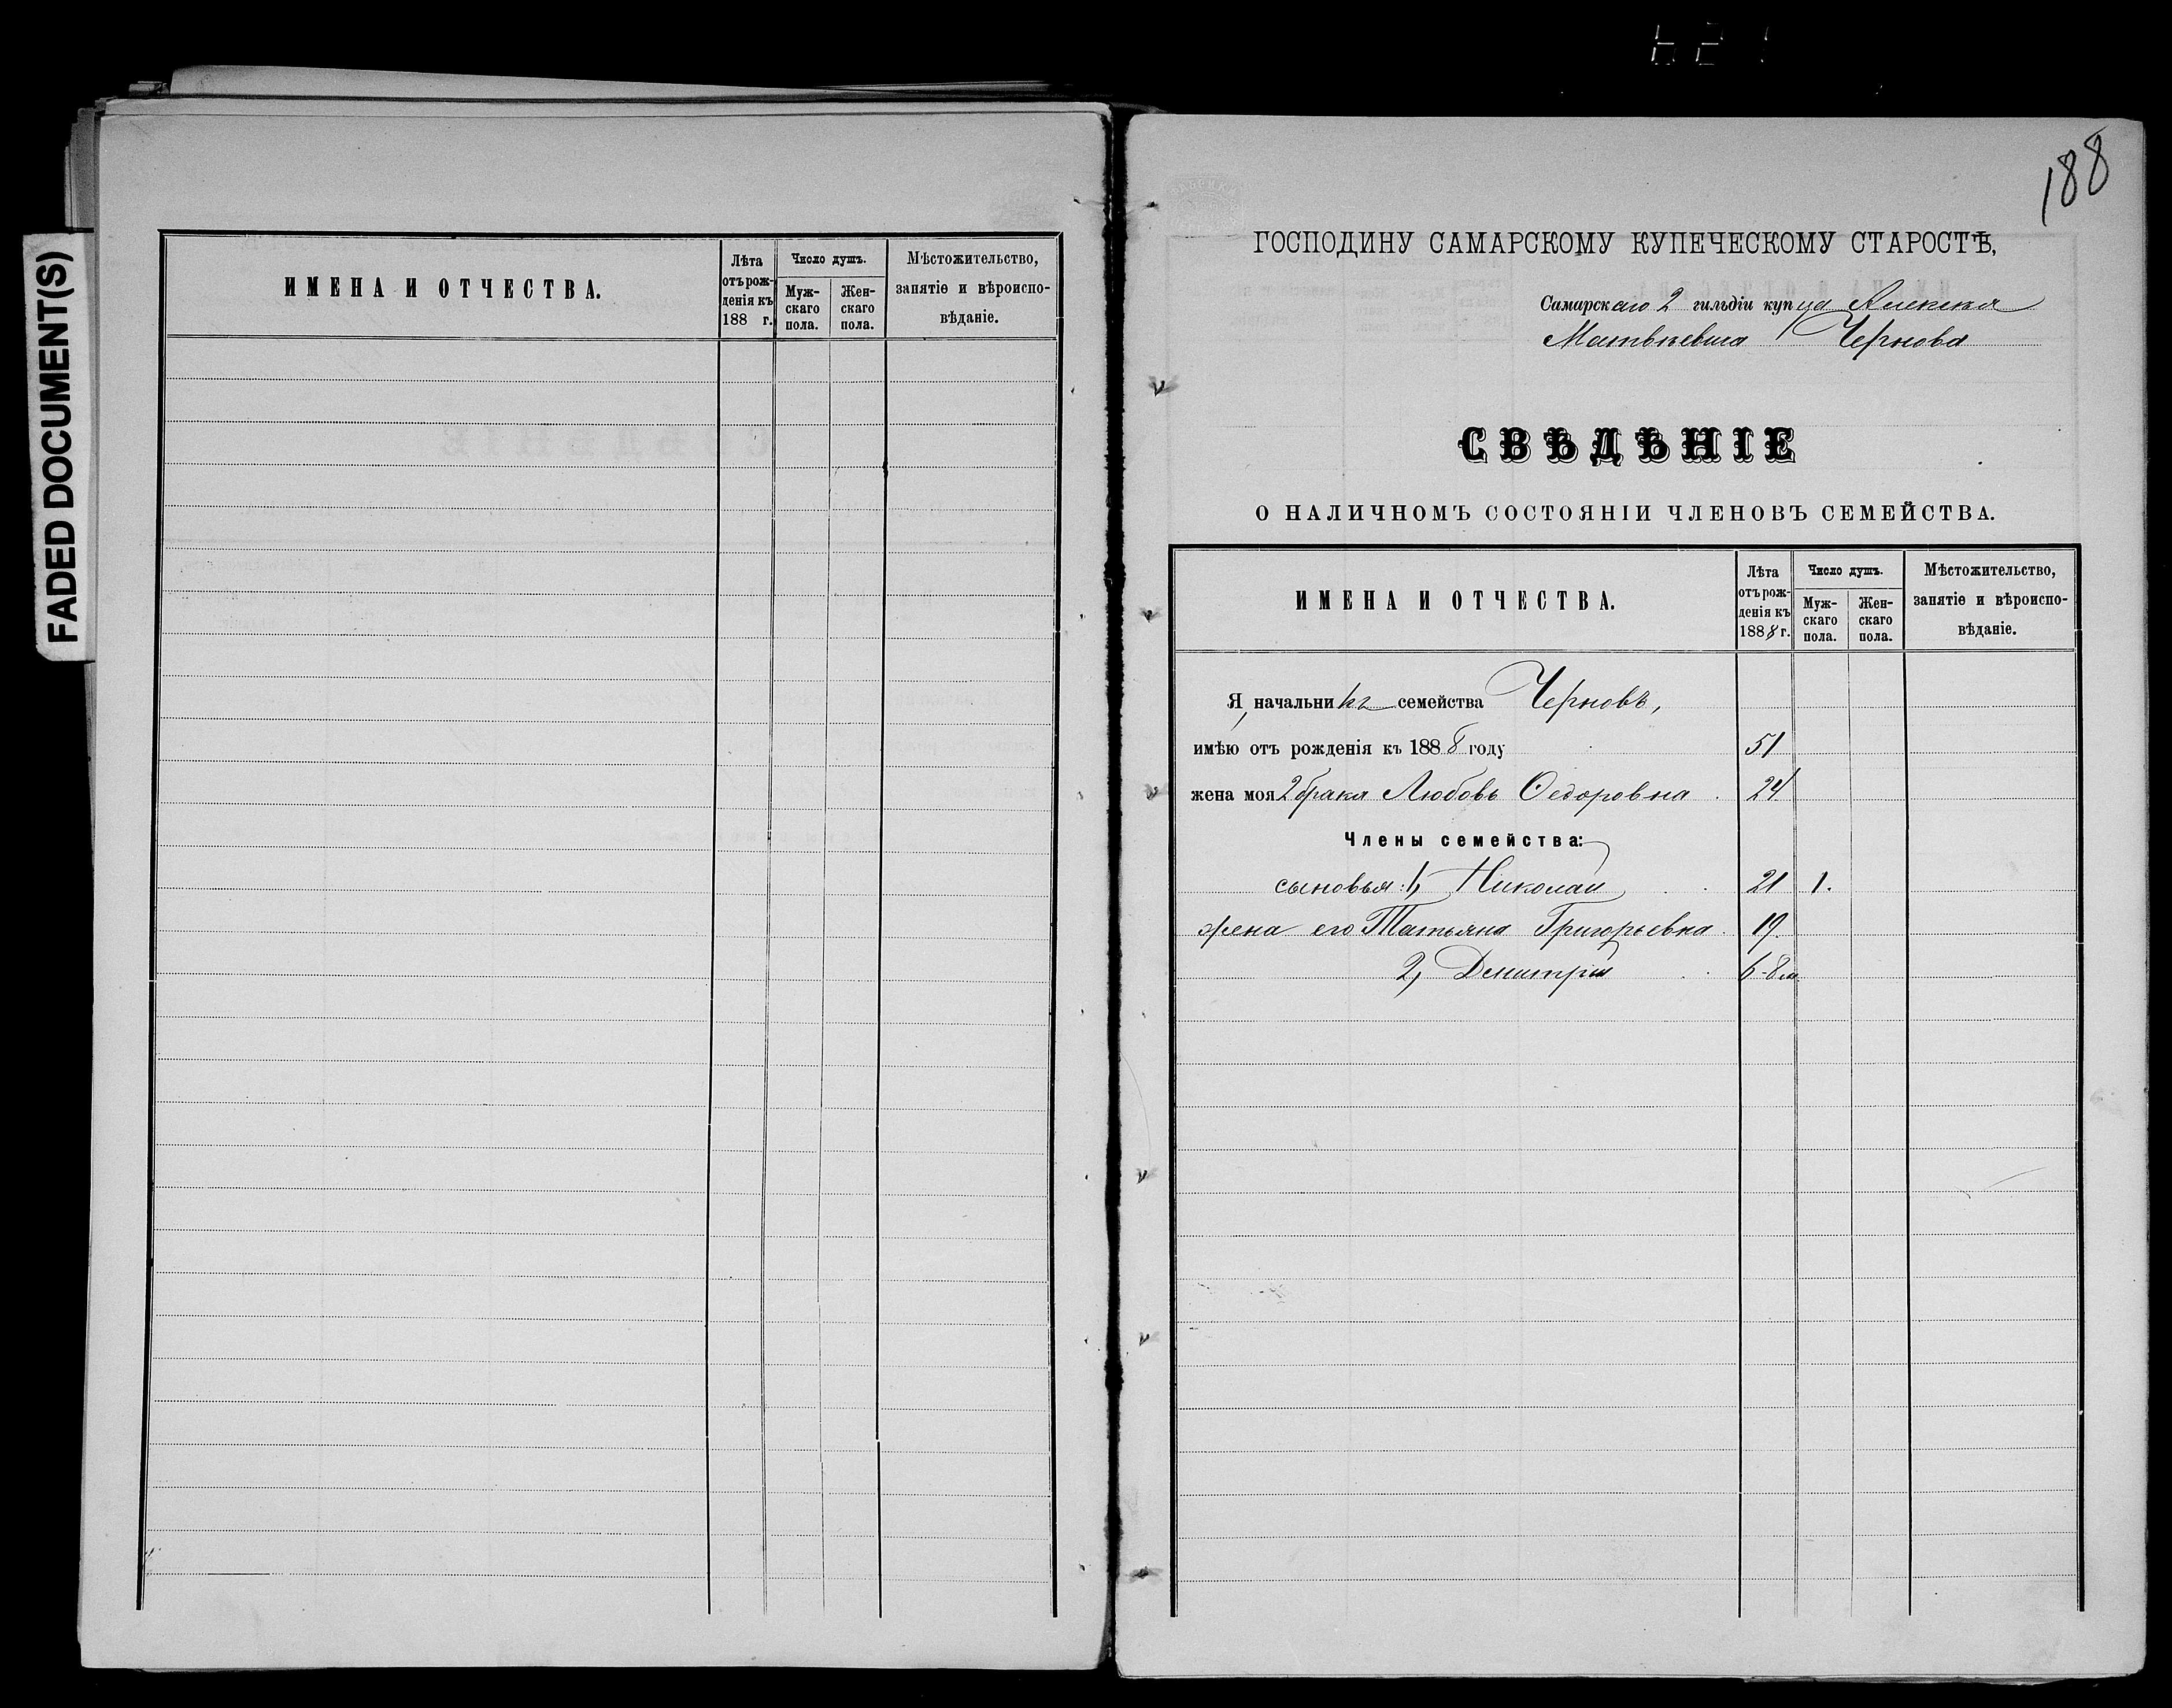 FADED DOCUMENT(S)
ИМЕНА И ОТЧЕСТВА.
Лѣта отъ рожденія къ 188 г.
Число душъ.
Мужскаго пола.
Женскаго пола.
Мѣстожительство, занятіе и вѣроисповѣданіе.
188
ГОСПОДИНУ САМАРСКОМУ КУПЕЧЕСКОМУ СТАРОСТѢ,
Самарскаго 2 гильдіи купца Алексѣя
Матвѣевича Чернова
СВѢДѢНІЕ
О НАЛИЧНОМЪ СОСТОЯНІИ ЧЛЕНОВЪ СЕМЕЙСТВА.
ИМЕНА И ОТЧЕСТВА.
Лѣта отъ рожденія къ 1888 г.
Число душъ.
Мужскаго пола.
Женскаго пола.
Мѣстожительство, занятіе и вѣроисповѣданіе.
Я, начальникъ семейства Черновъ,
имѣю отъ рожденія къ 1888 году 51
жена моя 2 брака Любовь Ѳедоровна 24
Члены семейства:
сыновья: 1, Николай 21 1.
жена его Татьяна Григорьевна 19
2, Демитрій 6-8 м